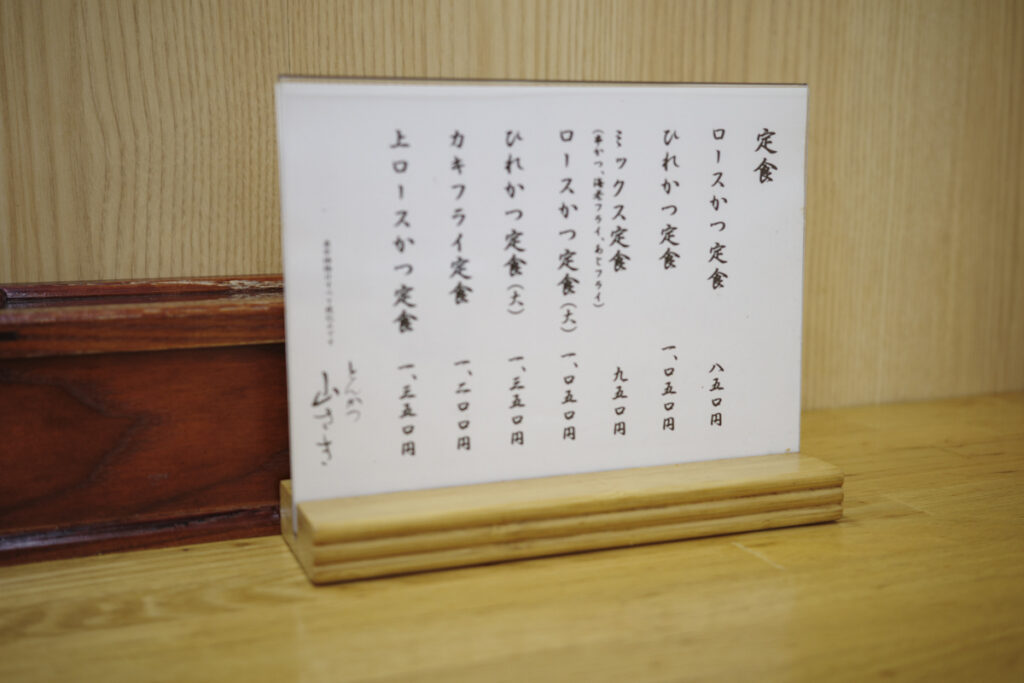 定食
ロースかつ定食 八五〇円
ひれかつ定食 一、〇五〇円
ミックス定食 九五〇円
(串かつ、海老フライ、あじフライ)
ロースかつ定食(大) 一、〇五〇円
ひれかつ定食(大) 一、三五〇円
カキフライ定食 一、二〇〇円
上ロースかつ定食 一、三五〇円
とんかつ
山さき